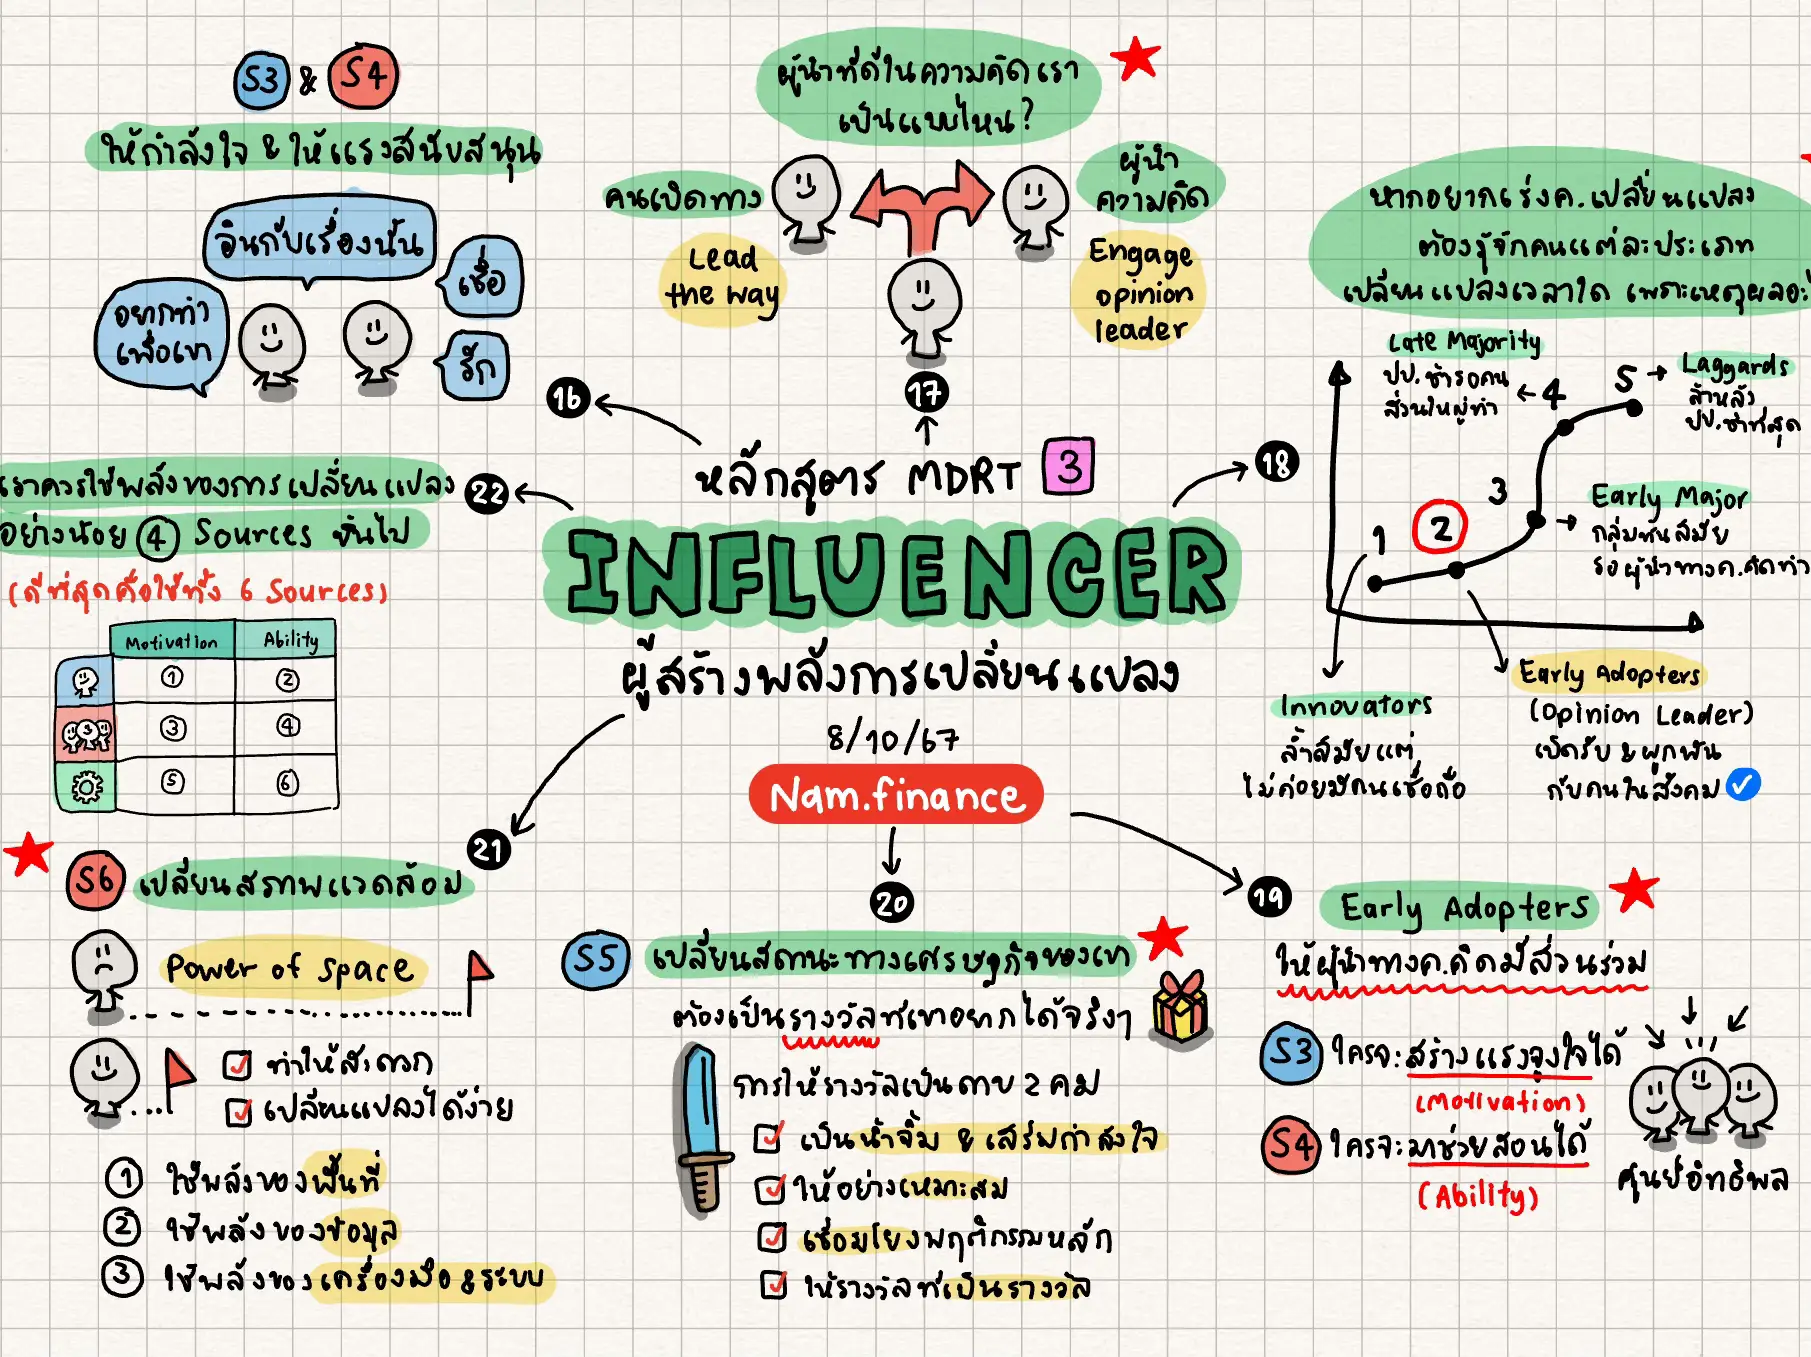 S3 & S4
ให้กำลังใจ & ให้แรงสนับสนุน
อินกับเรื่องนั้น
เชื่อ
อยากทำ
เพื่อเขา
รัก
16
ผู้นำที่ดีในความคิดเรา
เป็นแบบไหน?
คนเปิดทาง
Lead
the way
ผู้นำ
ความคิด
Engage
opinion
leader
17
หลักสูตร MDRT 3
INFLUENCER
ผู้สร้างพลังการเปลี่ยนแปลง
8/10/67
Nam.finance
18
หากอยากเร่งค.เปลี่ยนแปลง
ต้องรู้จักคนแต่ละประเภท
เปลี่ยนแปลงเวลาใด เพราะเหตุผลอะ
Late Majority
ปป.ช้ารอคน
ส่วนใหญ่ทำ
1
2
3
4
5
Laggards
ล้าหลัง
ปป.ช้าที่สุด
Early Major
กลุ่มทันสมัย
รอผู้นำทางค.คิดทำ
Innovators
ล้ำสมัยแต่
ไม่ค่อยมีคนเชื่อถือ
Early Adopters
(Opinion Leader)
เปิดรับ & ผูกพัน
กับคนในสังคม
19
Early Adopters
ให้ผู้นำทางค.คิดมีส่วนร่วม
S3 ใครจะสร้างแรงจูงใจได้
(Motivation)
S4 ใครจะมาช่วยสอนได้
(Ability)
ศูนย์อิทธิพล
20
S5 เปลี่ยนสถานะทางเศรษฐกิจของเขา
ต้องเป็นรางวัลที่เขาอยากได้จริงๆ
การให้รางวัลเป็นดาบ 2 คม
เป็นน้ำจิ้ม & เสริมกำลังใจ
ให้อย่างเหมาะสม
เชื่อมโยงพฤติกรรมหลัก
ให้รางวัลที่เป็นรางวัล
21
S6 เปลี่ยนสภาพแวดล้อม
Power of space
ทำให้สะดวก
เปลี่ยนแปลงได้ง่าย
1 ใช้พลังของพื้นที่
2 ใช้พลังของข้อมูล
3 ใช้พลังของเครื่องมือ & ระบบ
22
เราควรใช้พลังของการเปลี่ยนแปลง
อย่างน้อย 4 Sources ขึ้นไป
(ดีที่สุดคือใช้ทั้ง 6 Sources)
Motivation Ability
1 2
3 4
5 6